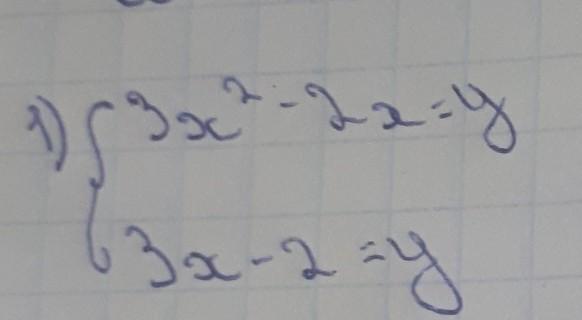 1) { 3x² - 2x = y
3x - 2 = y